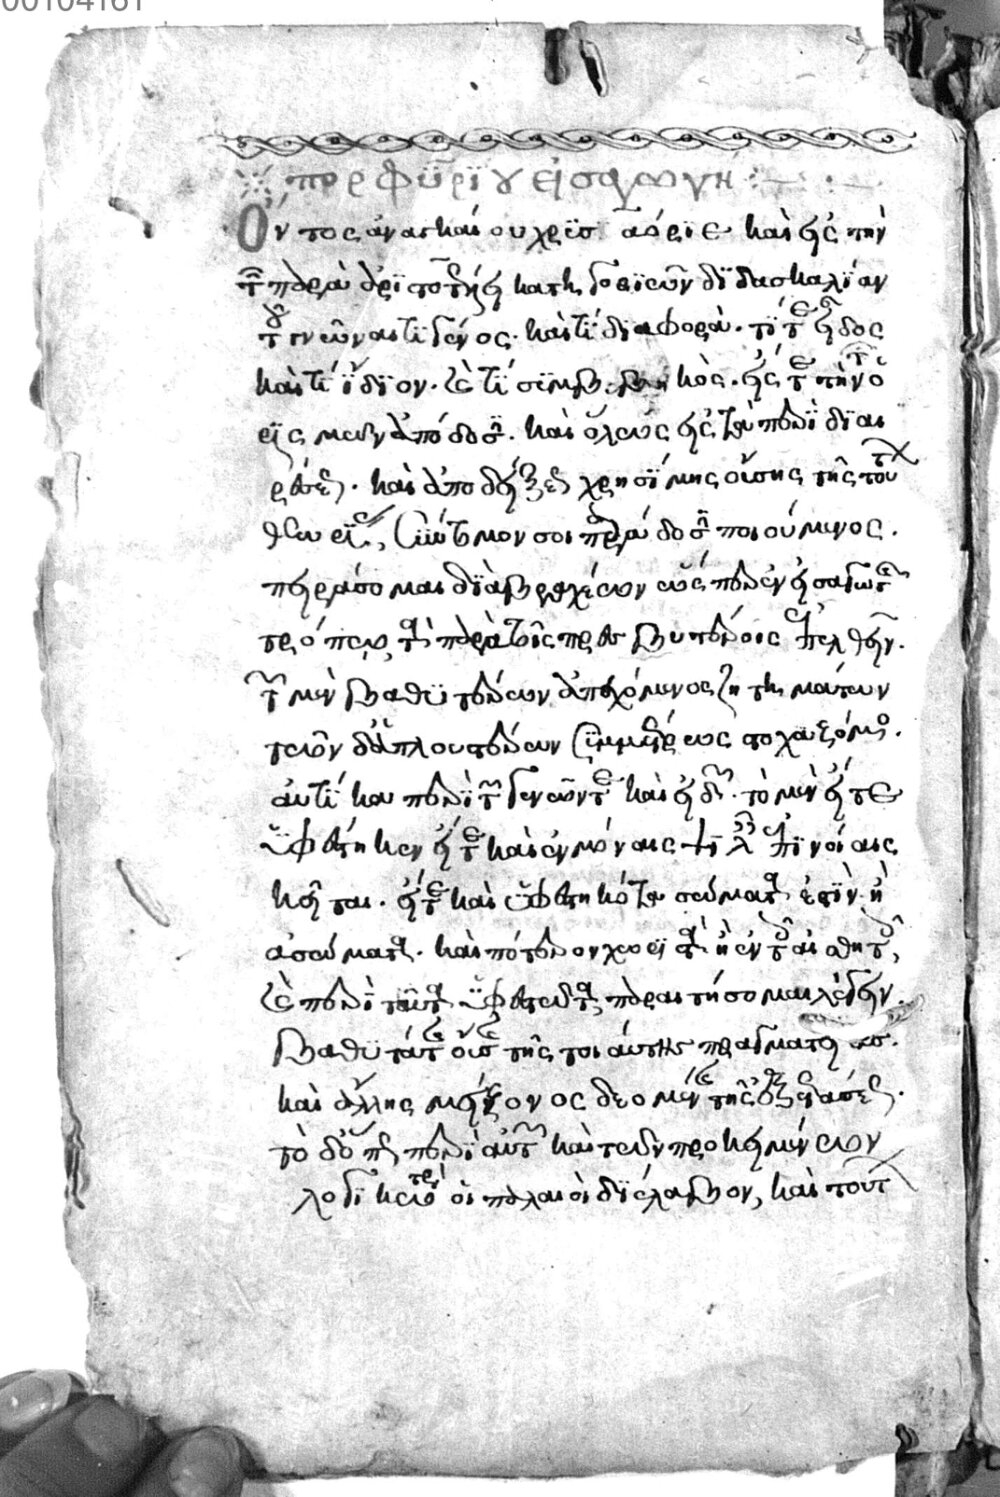 00104161
πορφϋρίου εἰσαγωγή
Ὄντος ἀναγκαίου χρυσαόριε καὶ εἰς τὴν
τῶν παρὰ ἀριστοτέλει κατηγοριῶν διδασκαλίαν
τοῦ γνῶναι τί γένος· καὶ τί διαφορά· τί τε εἶδος
καὶ τί ἴδιον· καὶ τί συμβεβηκός· εἴς τε τὴν τῶν ὁ
ρισμῶν ἀπόδοσιν· καὶ ὅλως εἰς τὰ περὶ διαι
ρέσεως· καὶ ἀποδείξεως χρησίμης οὔσης τῆς τούτων
θεωρίας, σύντομόν σοι παράδοσιν ποιούμενος·
πειράσομαι διὰ βραχέων ὡς ἐν εἰσαγωγῆς
τρόπῳ, τὰ παρὰ τοῖς πρεσβυτέροις ἐπελθεῖν·
τῶν μὲν βαθυτέρων ἀπεχόμενος ζητημάτων
τῶν δ' ἁπλουστέρων συμμέτρως στοχαζόμενος·
αὐτίκα περὶ τῶν γενῶν τε καὶ εἰδῶν· τὸ μὲν εἴτε
ὑφέστηκεν εἴτε καὶ ἐν μόναις ψιλαῖς ἐπινοίαις
κεῖται· εἴτε καὶ ὑφεστηκότα σώματά ἐστιν ἢ
ἀσώματα· καὶ πότερον χωριστὰ ἢ ἐν τοῖς αἰσθητοῖς,
καὶ περὶ ταῦτα ὑφεστῶτα, παραιτήσομαι λέγειν·
βαθυτάτης οὔσης τῆς τοιαύτης πραγματείας·
καὶ ἄλλης μείζονος δεομένης τῆς ἐξετάσεως·
τὸ δ' ὅπως περὶ αὐτῶν καὶ τῶν προκειμένων
λογικώτερον οἱ παλαιοὶ διέλαβον, καὶ τούτων